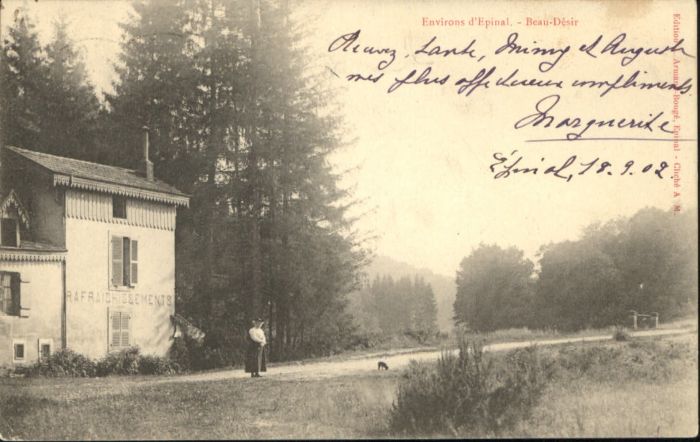 Environs d'Epinal. - Beau-Désir
Recevez, tante, Mimy et Auguste
mes plus affectueux compliments
Marguerite
Épinal, 18.9.02
RAFRAICHISSEMENTS
Edition Armand Bougé, Epinal - Cliché A. M.